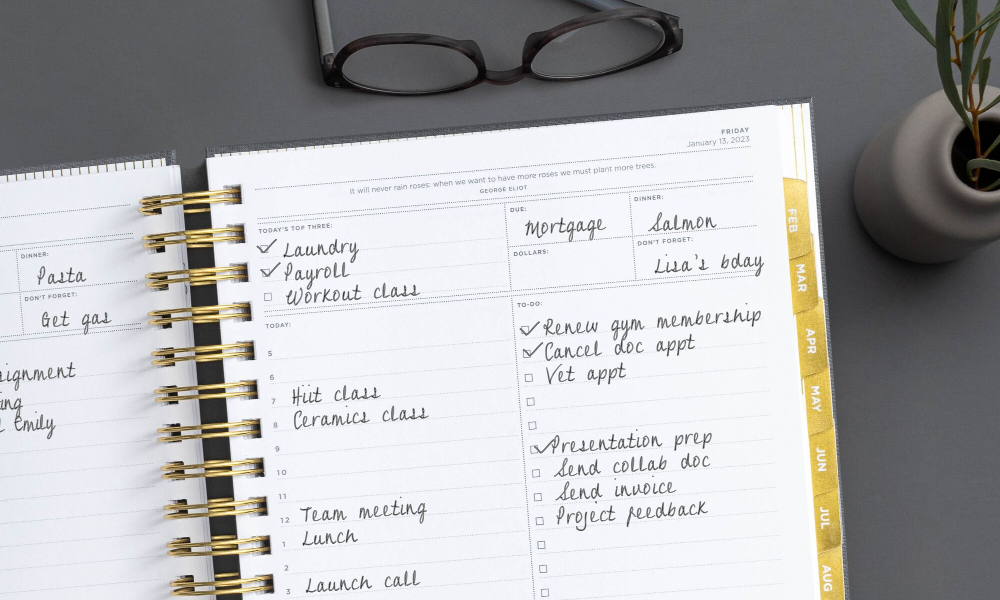 DINNER:
Pasta
DON'T FORGET:
Get gas
Emily
FRIDAY
January 13, 2023
It will never rain roses: when we want to have more roses we must plant more trees.
GEORGE ELIOT
TODAY'S TOP THREE:
Laundry
Payroll
Workout class
DUE:
Mortgage
DINNER:
Salmon
DOLLARS:
DON'T FORGET:
Lisa's bday
TODAY:
5
6
7 Hiit class
8 Ceramics class
9
10
11
12 Team meeting
1 Lunch
2
3 Launch call
TO-DO:
Renew gym membership
Cancel doc appt
Vet appt
Presentation prep
Send collab doc
Send invoice
Project feedback
FEB
MAR
APR
MAY
JUN
JUL
AUG